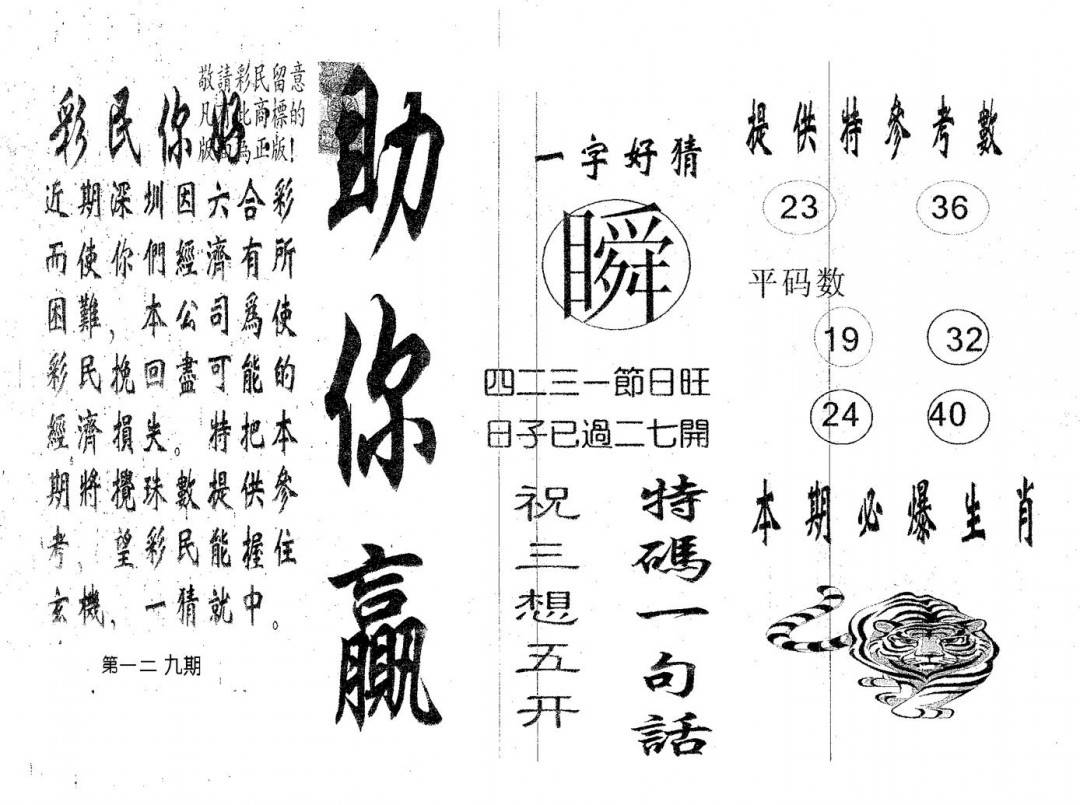 敬請彩民留意
凡 此商標的
版 為正版!
彩民你好
近期深圳因六合彩
而使你們經濟有所
困難,本公司爲使
彩民挽回盡可能的
經濟損失。特把本
期將攪珠數提供參
考,望彩民能握住
玄機,一猜就中。
第一二九期
助你贏
一字好猜
瞬
四二三一節日旺
日子已過二七開
特碼一句話
祝三想五开
提供特參考數
23 36
平码数
19 32
24 40
本期必爆生肖